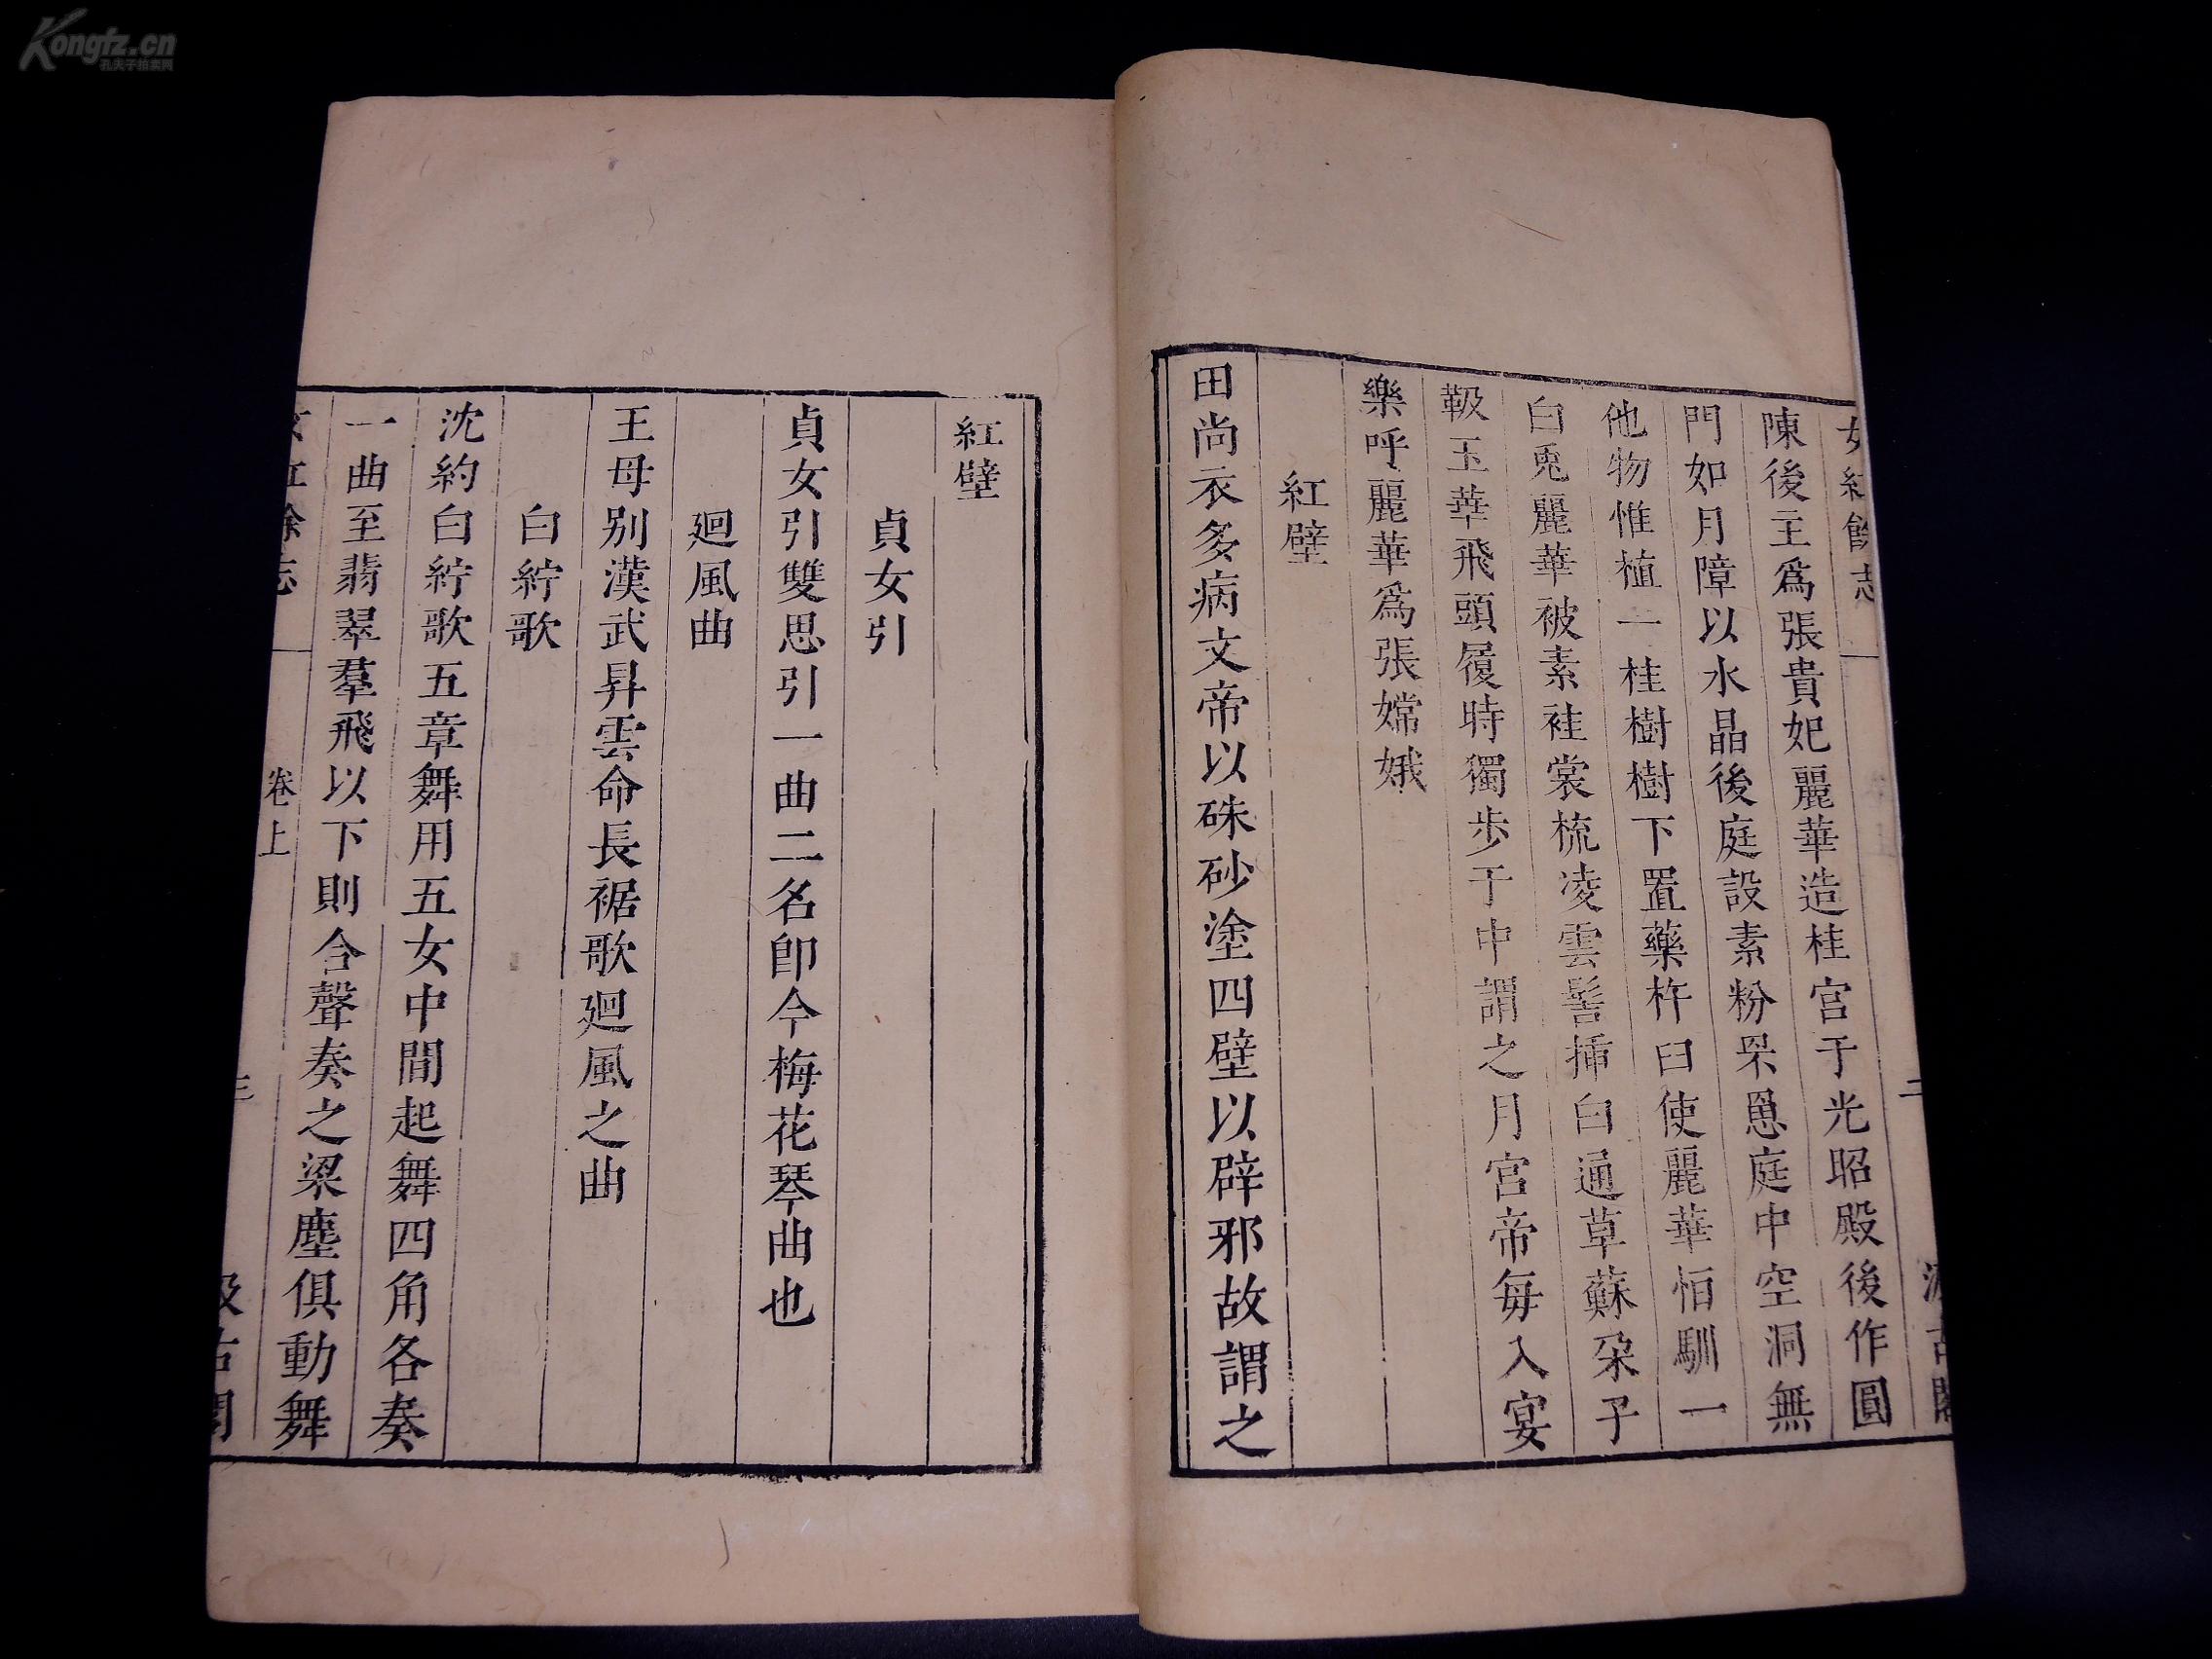 Kongfz.cn
孔夫子拍卖网
女紅餘志
二
陳後主爲張貴妃麗華造桂宮于光昭殿後作圓
門如月障以水晶後庭設素粉罘罳庭中空洞無
他物惟植一桂樹樹下置藥杵臼使麗華恒馴一
白兎麗華被素袿裳梳凌雲髻揷白通草蘇朶子
靸玉華飛頭履時獨步于中謂之月宮帝每入宴
樂呼麗華爲張嫦娥
紅壁
田尚衣多病文帝以硃砂塗四壁以辟邪故謂之
紅壁
貞女引
貞女引雙思引一曲二名卽今梅花琴曲也
廻風曲
王母別漢武昇雲命長裾歌廻風之曲
白紵歌
沈約白紵歌五章舞用五女中間起舞四角各奏
一曲至翡翠羣飛以下則合聲奏之梁塵俱動舞
女紅餘志
卷上
三
汲古閣